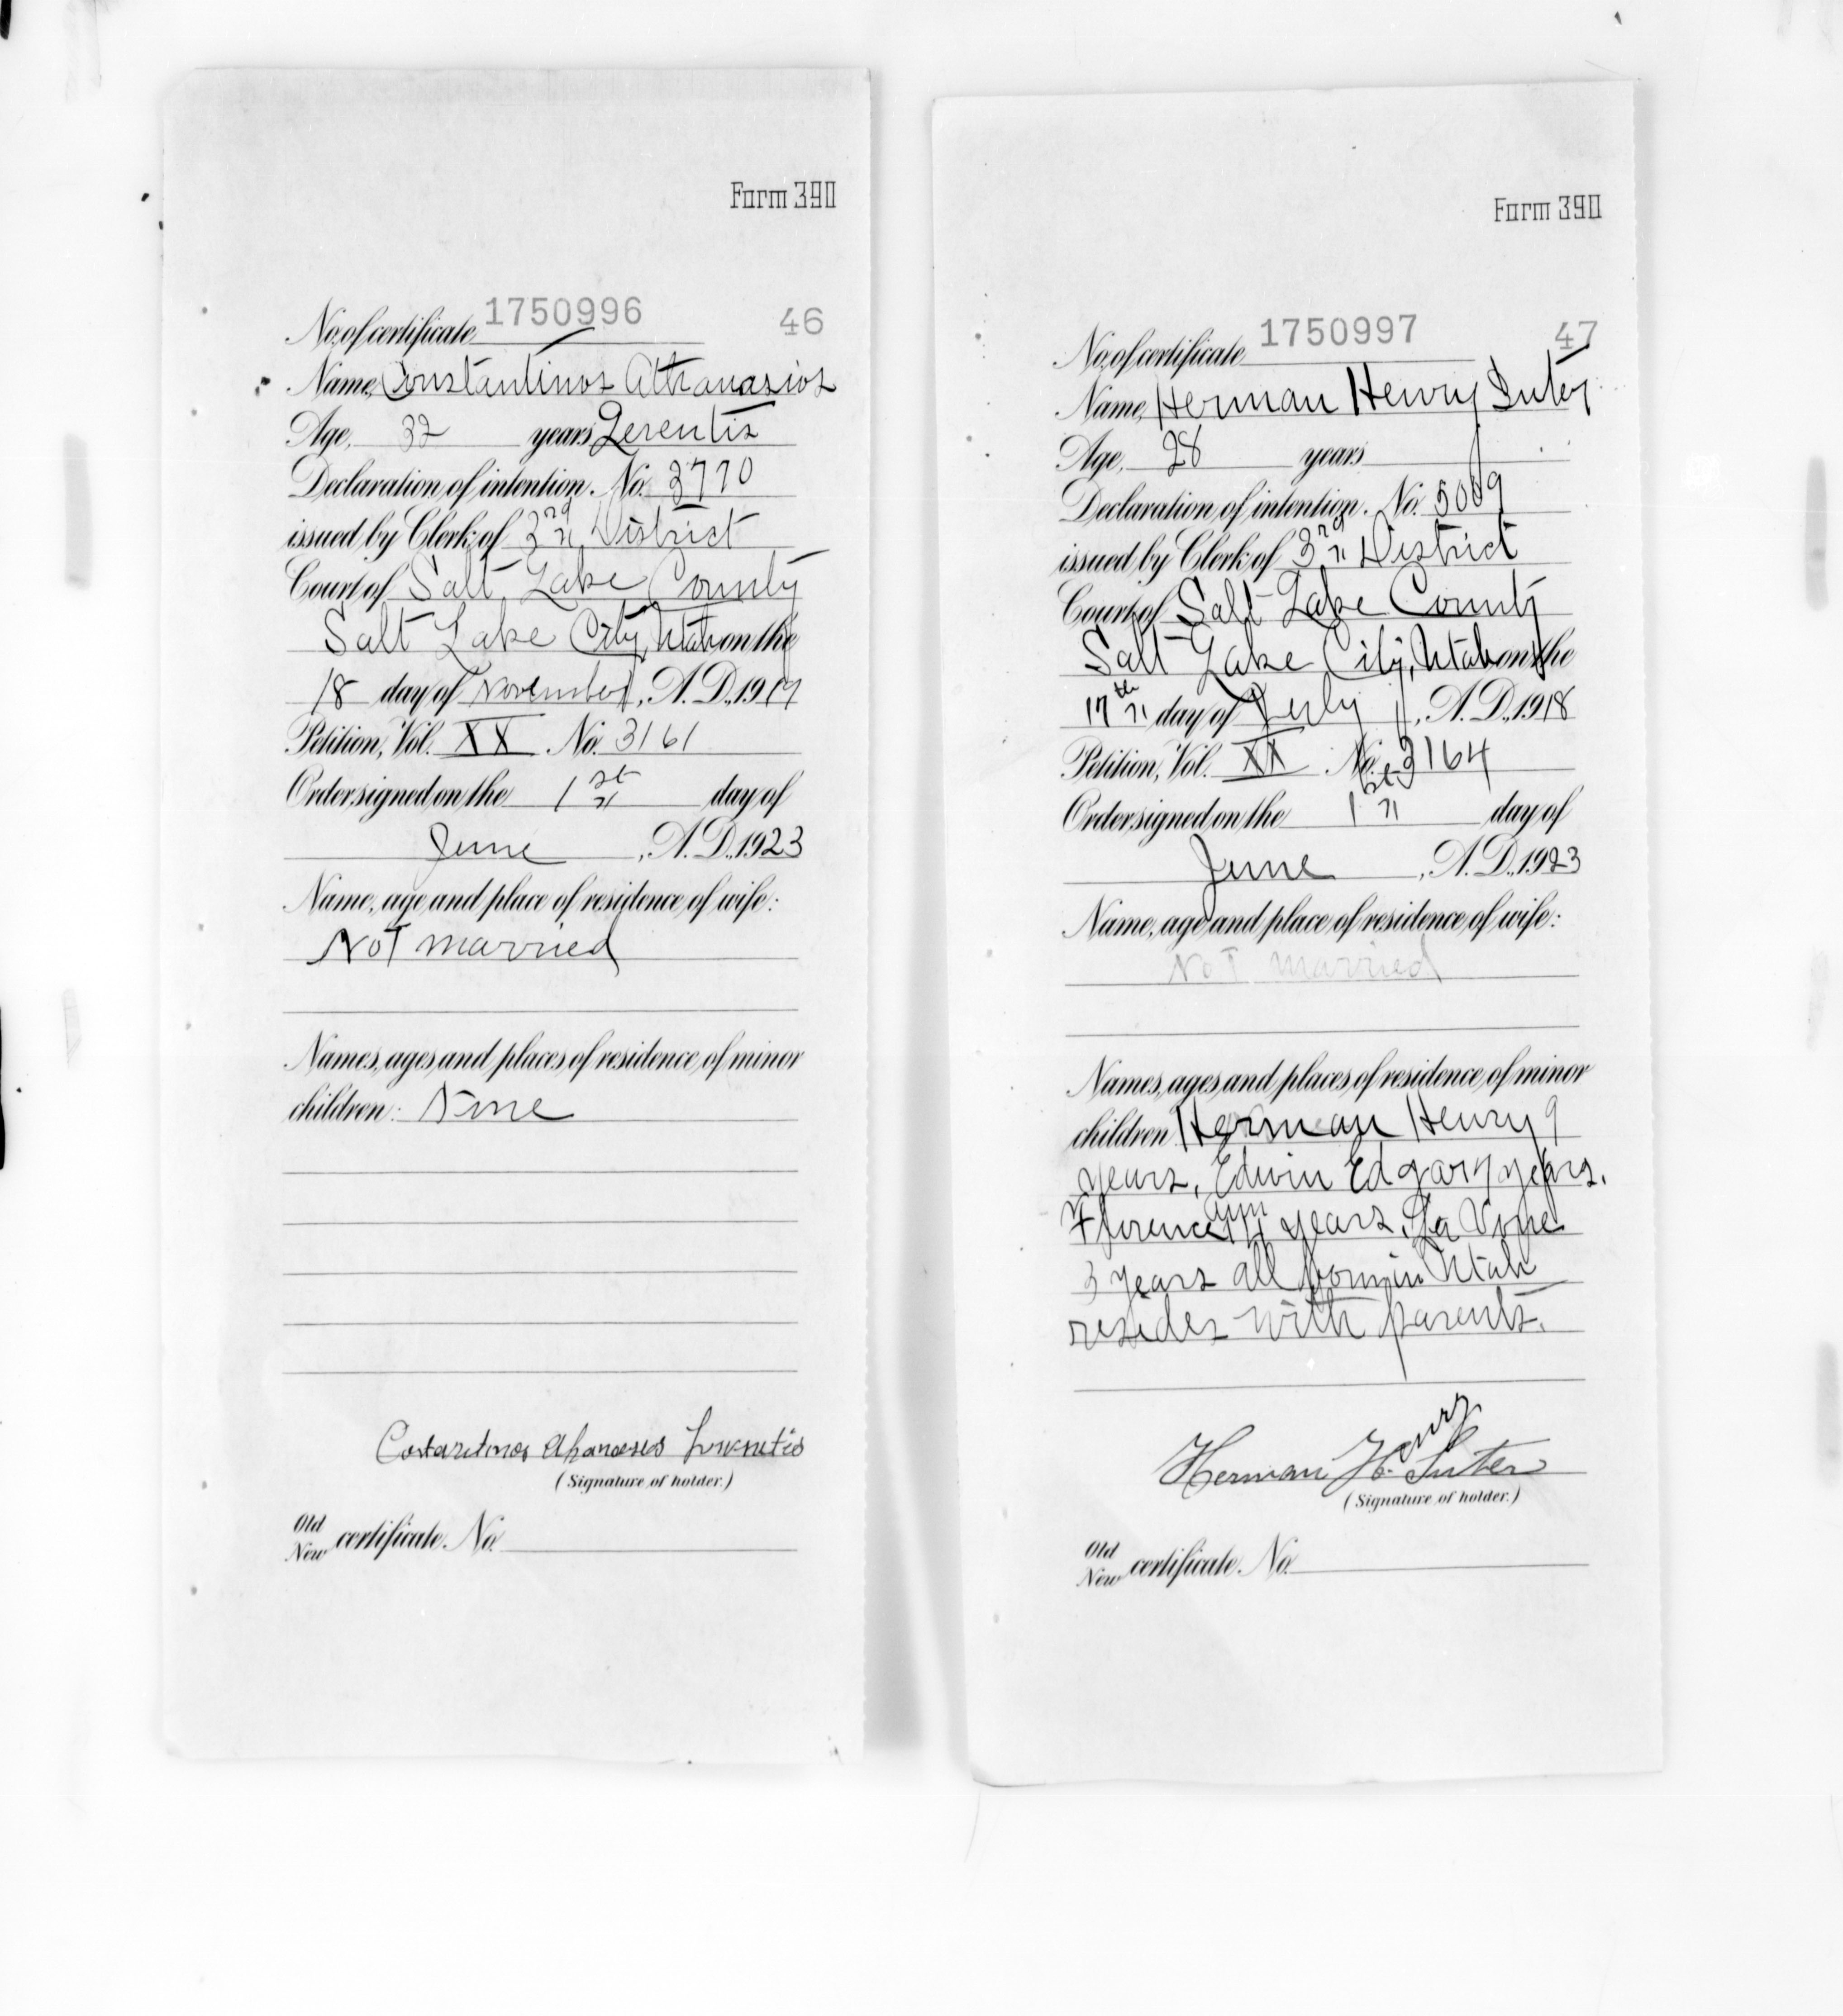 Form 390
No. of certificate 1750996 46
Name, Constantinos Athanasios
Age, 32 years Lerentis
Declaration of intention. No. 3770
issued by Clerk of 3rd District
Court of Salt Lake County
Salt Lake City, Utah on the
18 day of November, A. D., 1917
Petition, Vol. XX No. 3161
Order signed on the 1st day of
June, A. D., 1923
Name, age and place of residence of wife:
Not married
Names, ages and places of residence of minor
children: None
(Signature of holder.)
Old
New certificate. No.
Form 390
No. of certificate 1750997 47
Name, Herman Henry Suter
Age, 28 years
Declaration of intention. No. 5009
issued by Clerk of 3rd District
Court of Salt Lake County
Salt Lake City, Utah on the
17th day of July, A. D., 1918
Petition, Vol. XX No. 3164
Order signed on the 1st day of
June, A. D., 1923
Name, age and place of residence of wife:
Not married
Names, ages and places of residence of minor
children Herman Henry 9
years, Edwin Edgar 7 years.
Florence Ann years, La
3 years all born in Utah
resides with parents.
Henry
Herman H. Suter
(Signature of holder.)
Old
New certificate. No.